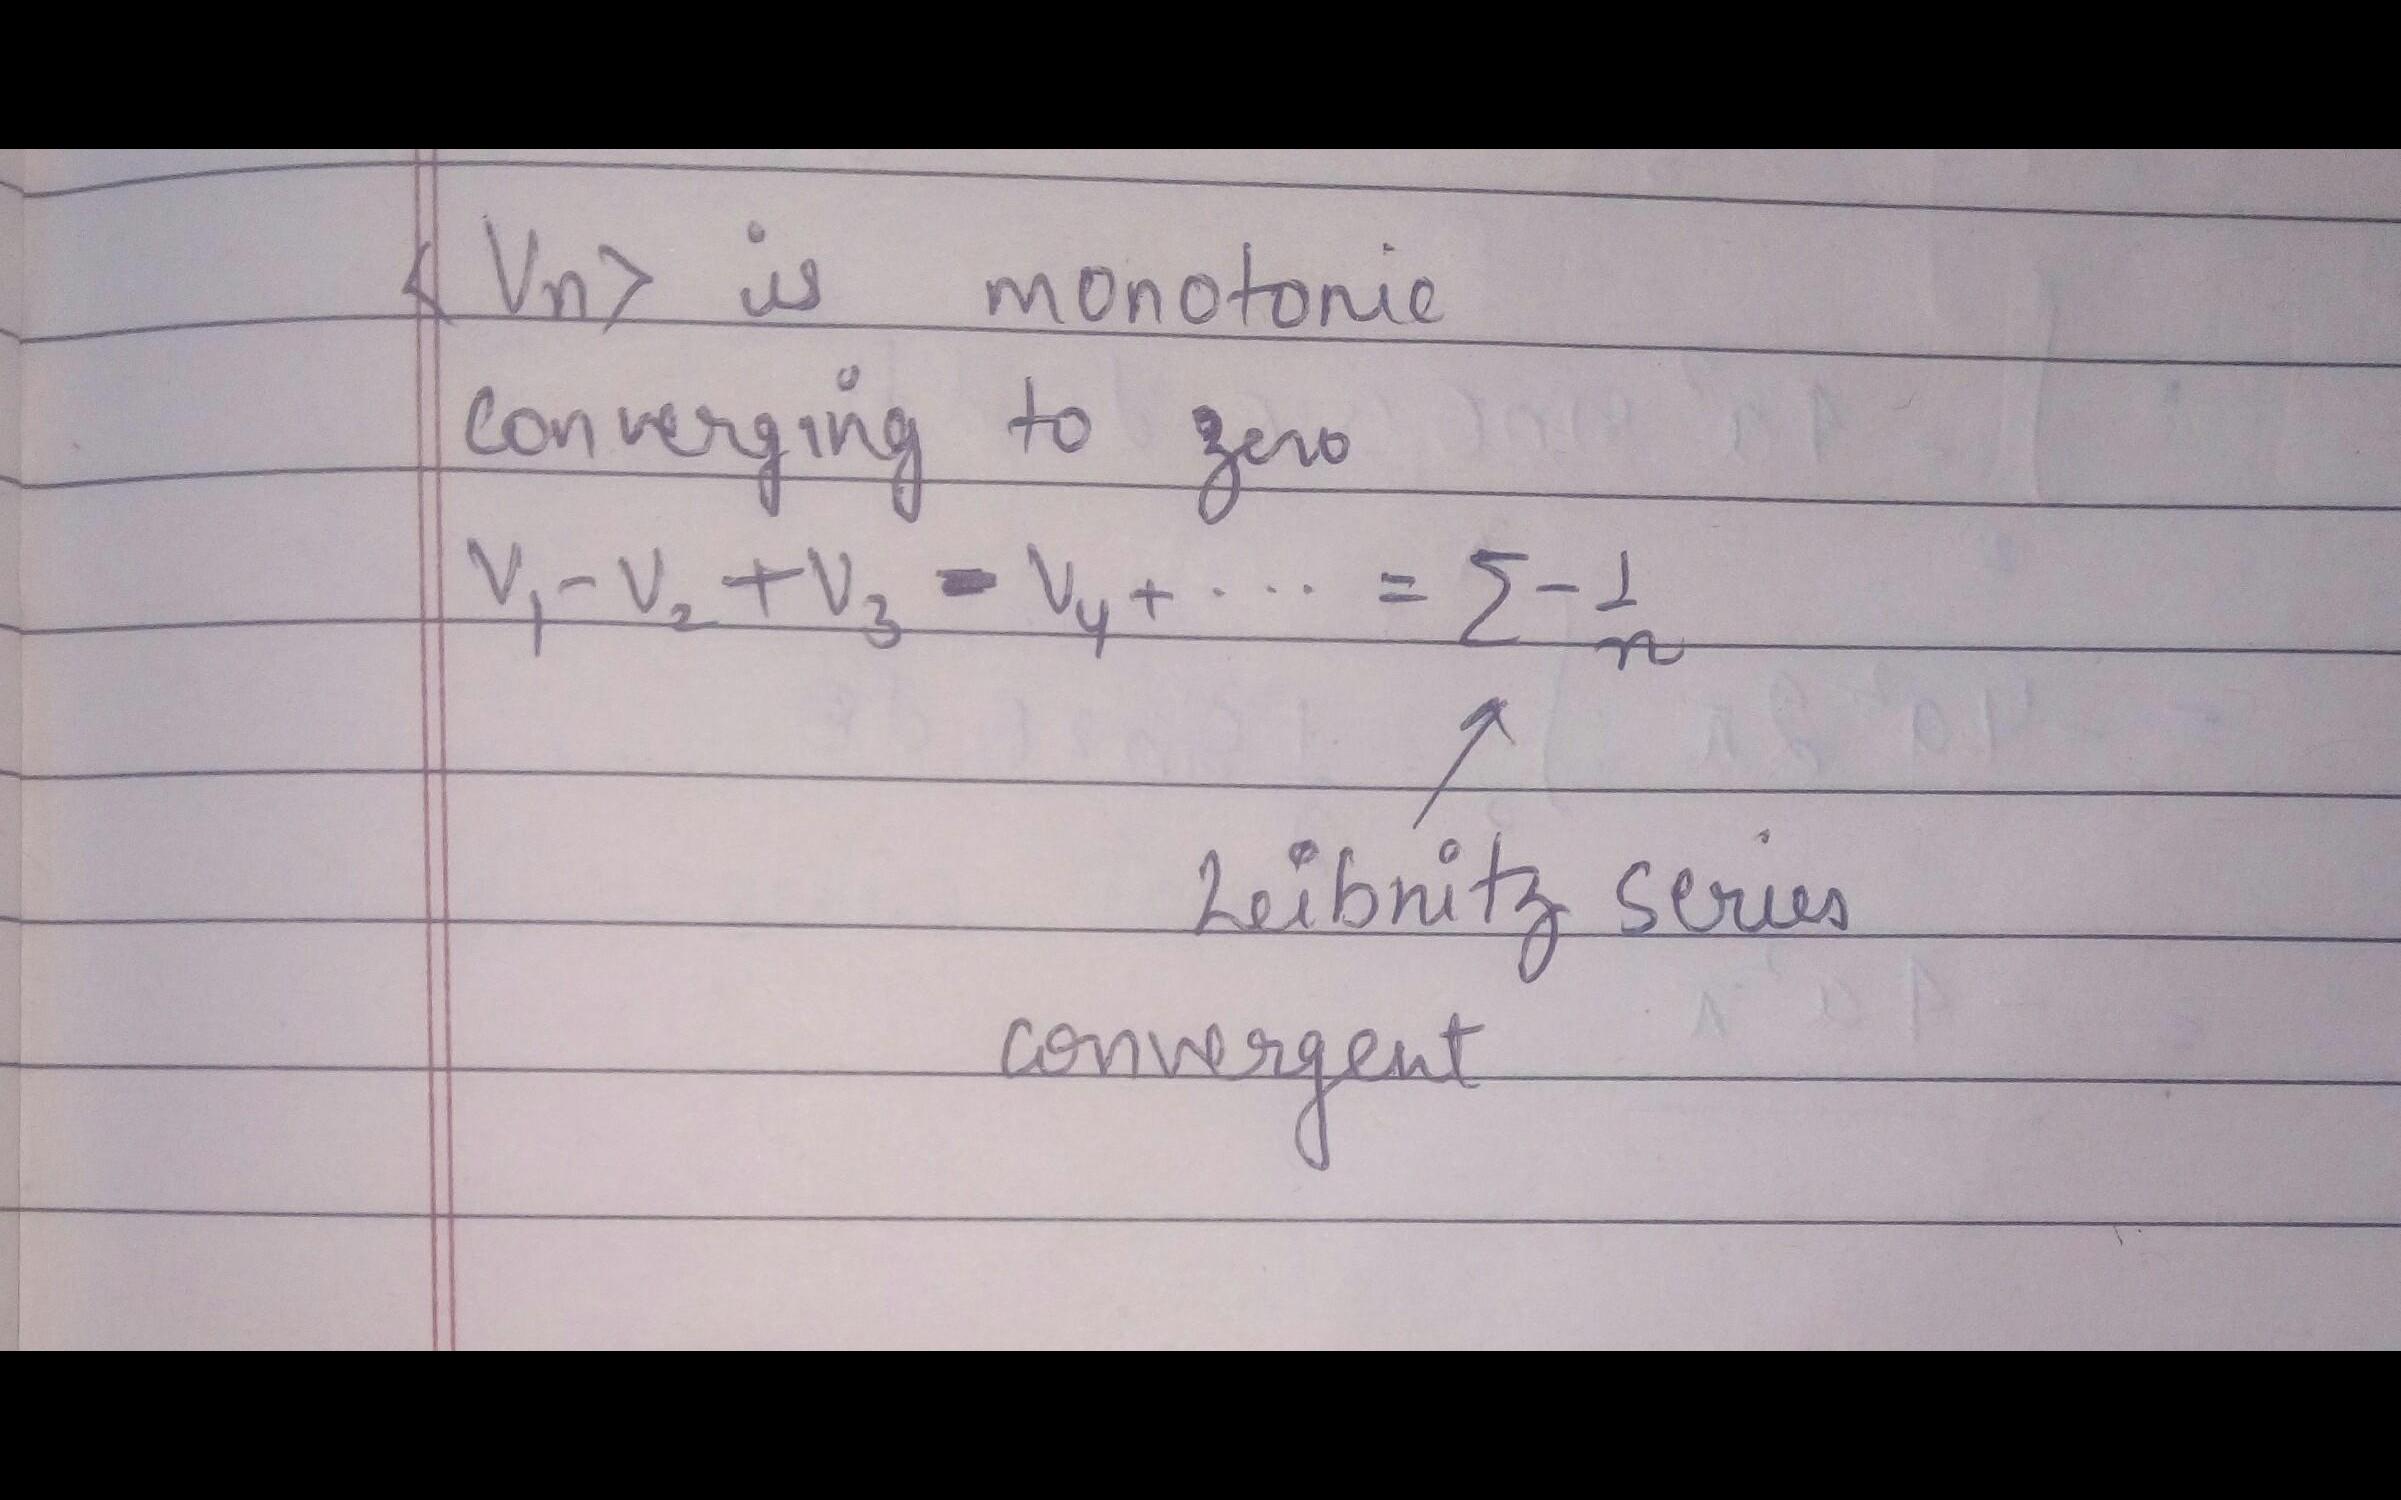 <Vn> is monotonic
converging to zero
V₁ - V₂ + V₃ - V₄ + .... = Σ - 1/n
Leibnitz series
convergent